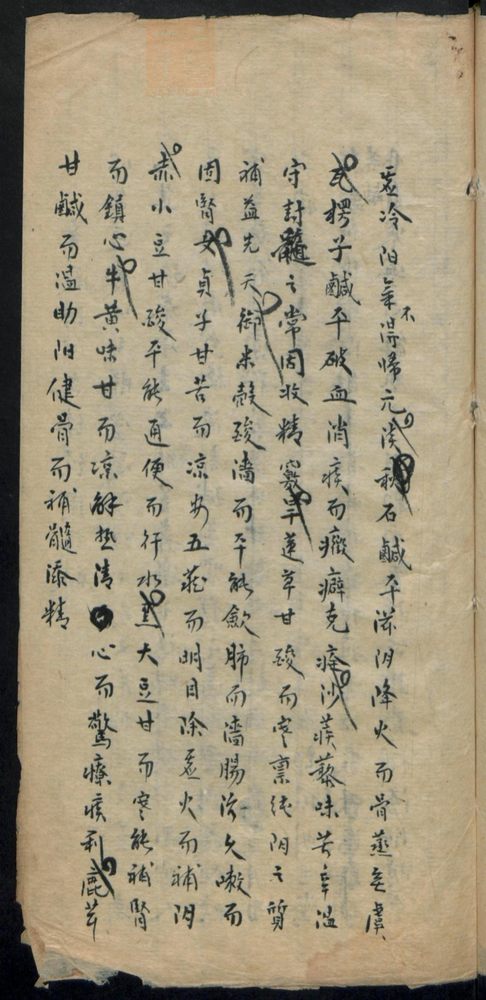 虛冷阳氣不得歸元淡秋石鹹平滋阴降火而骨蒸無虞
瓦楞子鹹平破血消痰而癥癖克痊沙蒺藜味苦辛温
守封髓之常固收精竅旱蓮草甘酸而寒禀純阴之質
補益先天御米殼酸濇而平能歛肺而濇腸治久嗽而
固腎女貞子甘苦而凉安五臟而明目除虛火而補阴
赤小豆甘酸平能通便而行水黑大豆甘而寒能補腎
而鎮心牛黄味甘而凉解熱清心而驚療痰利鹿茸
甘鹹而温助阳健骨而補髓添精